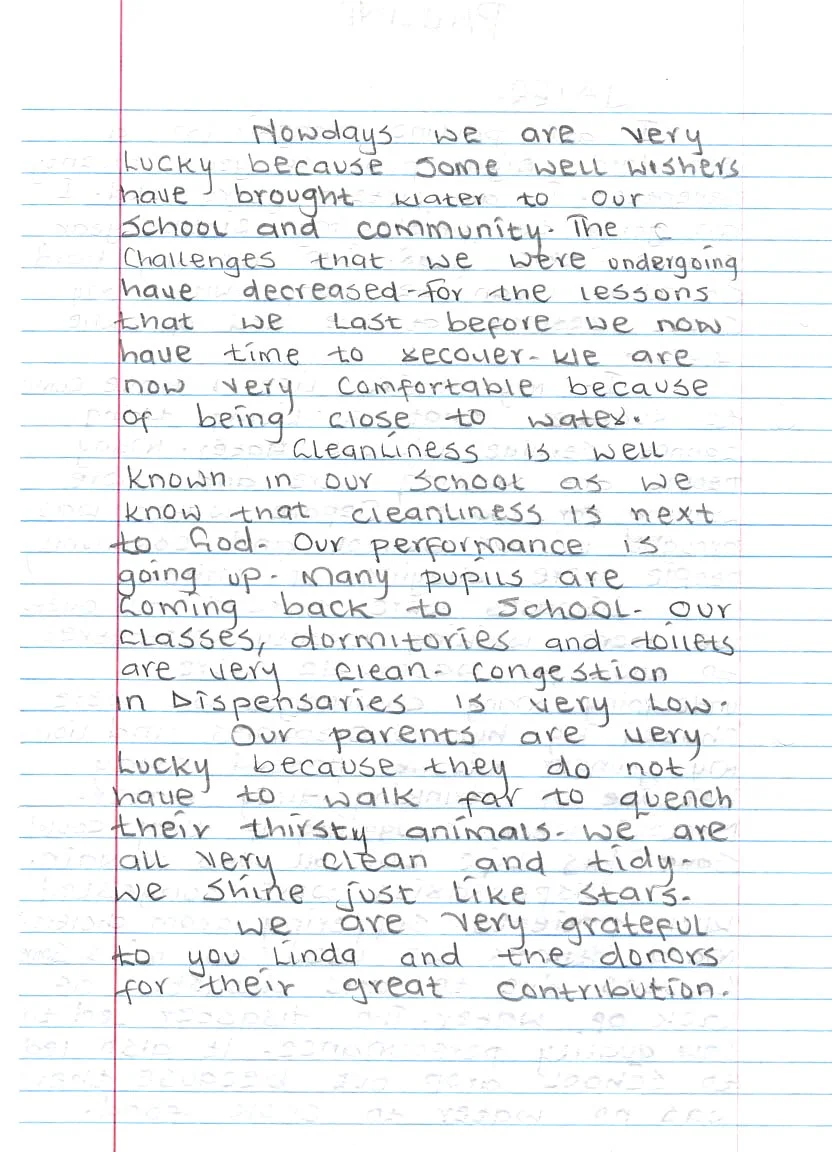 Nowdays we are very
Lucky because some well wishers
have brought water to our
School and community. The
Challenges that we were undergoing
have decreased for the lessons
that we Last before we now
have time to recover. We are
now very comfortable because
of being close to water.
Cleanliness is well
known in our school as we
know that cleanliness is next
to God. Our performance is
going up. Many pupils are
Coming back to School. Our
classes, dormitories and toilets
are very clean. Congestion
in Dispensaries is very Low.
Our parents are very
Lucky because they do not
have to walk far to quench
their thirsty animals. We are
all very clean and tidy.
We shine just like stars.
We are very grateful
to you Linda and the donors
for their great contribution.